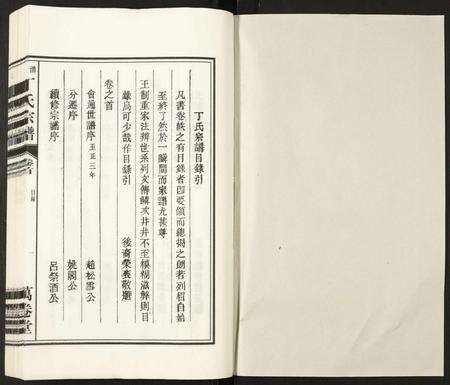 丁氏宗譜目錄引
凡書卷帙之有目錄者即要領而總揭之朗若列眉自始
至終了然於一瞬間而家譜尤甚尊
王制重家法辨世系列文傳鱗次井井不至模糊滋弊則目
錄烏可少哉作目錄引
後裔榮袞敬選
卷之首
會通世譜序 至正三年 趙松雪公
分遷序 姚閣公
續修宗譜序 呂祭酒公
譜
丁氏宗譜
卷首
目錄
一
萬卷堂